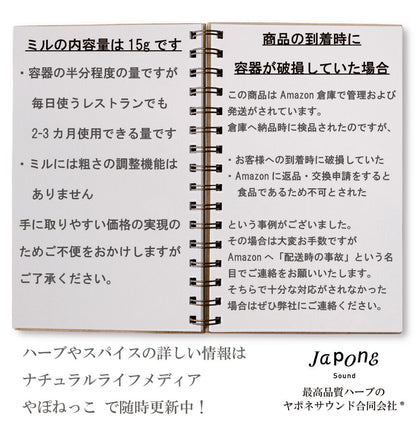 ミルの内容量は 15g です
・容器の半分程度の量ですが
毎日使うレストランでも
2-3 カ月使用できる量です
・ミルには粗さの調整機能は
ありません
手に取りやすい価格の実現の
ためご不便をおかけしますが
ご了承ください。
商品の到着時に
容器が破損していた場合
この商品は Amazon 倉庫で管理および
発送がされています。
倉庫へ納品時に検品されたのですが、
・お客様への到着時に破損していた
・Amazon に返品・交換申請をすると
食品であるため不可とされた
という事例がございました。
その場合は大変お手数ですが
Amazon へ「配送時の事故」という名
目でご連絡をお願いいたします。
そちらで十分な対応がされなかった
場合はぜひ弊社にご連絡ください。
ハーブやスパイスの詳しい情報は
ナチュラルライフメディア
やぽねっこ で随時更新中！
Japone
Sound
最高品質ハーブの
ヤポネサウンド合同会社®